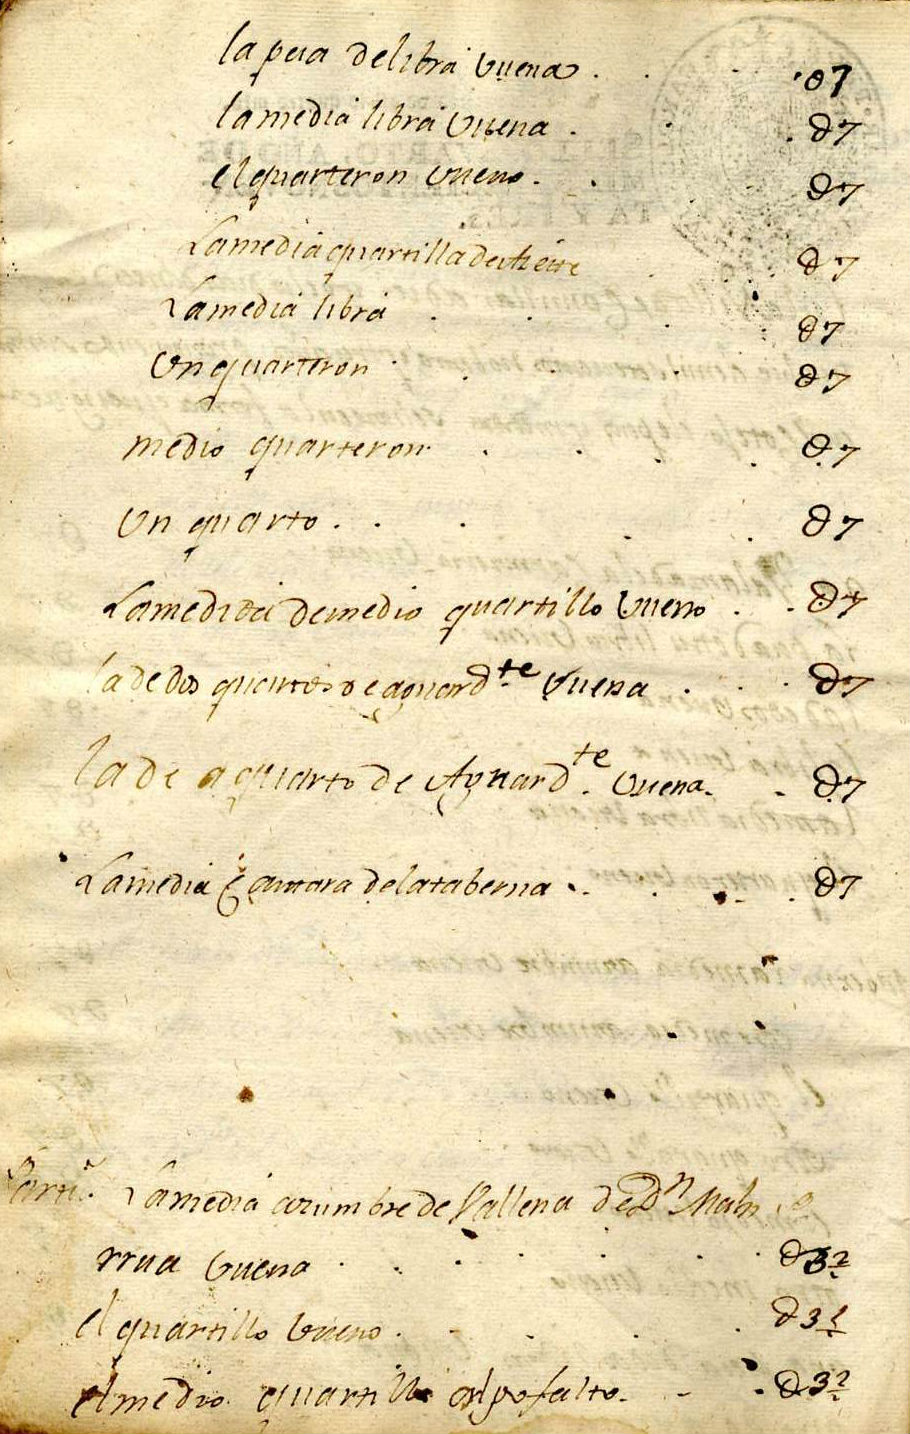 la pesa de libra buena . . . . 07
la media libra buena . . . 07
el quarteron bueno . . 07
La media quartilla de Azeite . . 07
La media libra . . . . 07
Un quarteron . . . . 07
medio quarteron . . . . 07
Un quarto . . . . . 07
La medida de medio quartillo bueno . . 07
la de dos quartos de aguard.te buena . . . 07
la de a quarto de Aguard.te buena . . 07
La media Cantara de la taberna . . . . 07
La media azumbre de Vallena de Dn
rrua buena . . . . . .
el quartillo bueno . . . . .
el medio quartillo falto . . .